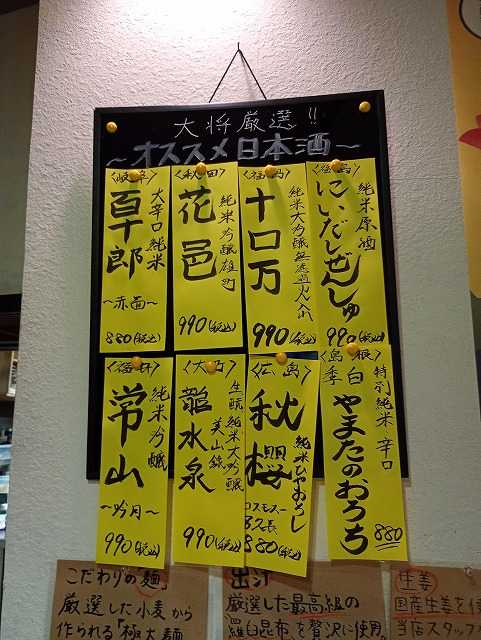 大将厳選!!
～オススメ日本酒～
〈福島〉
純米原酒
にいだしぜんしゅ
990(税込)
〈福島〉
純米大吟醸無濾過一回火入れ
十口万
990(税込)
〈秋田〉
純米吟醸雄町
花邑
990(税込)
〈岐阜〉
大辛口純米
百十郎
～赤面～
880(税込)
〈島根〉
特別純米 辛口
季白
やまたのおろち
880
〈広島〉
純米ひやおろし
秋櫻
コスモス
880(税込)
生酛純米大吟醸
美山錦
龍水泉
990(税込)
〈福井〉
純米吟醸
常山
～吟月～
990(税込)
こだわりの「麺」
厳選した小麦から
作られる「極太麺
出汁
厳選した最高級の
羅臼昆布を贅沢に使用。
生姜
国産生姜を使
当店スタッフ